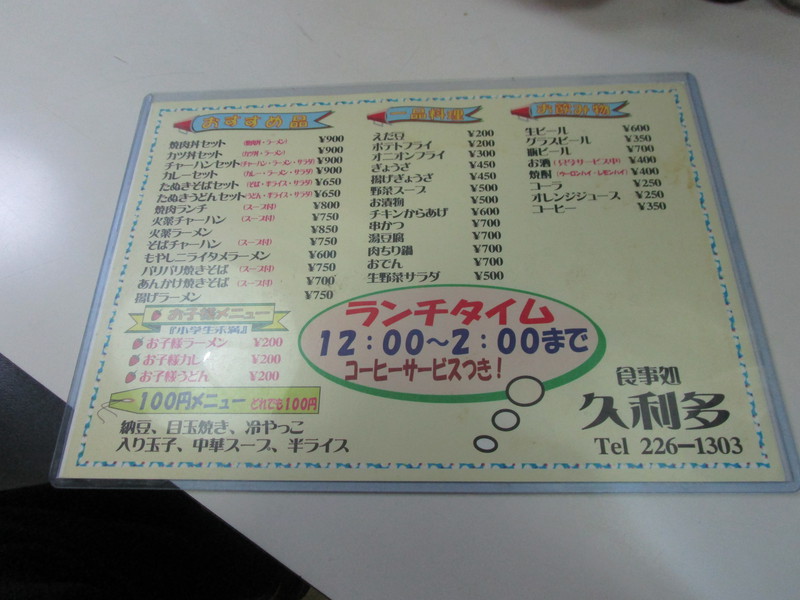 おすすめ品
焼肉丼セット ¥900
カツ丼セット ¥900
チャーハンセット (チャーハン・ラーメン・サラダ) ¥900
カレーセット (カレー・ラーメン・サラダ) ¥900
たぬきそばセット (そば・半ライス・サラダ) ¥650
たぬきうどんセット (うどん・半ライス・サラダ) ¥650
焼肉ランチ (スープ付) ¥800
火薬チャーハン (スープ付) ¥750
火薬ラーメン ¥850
そばチャーハン (スープ付) ¥750
もやしニライタメラーメン ¥600
パリパリ焼きそば (スープ付) ¥750
あんかけ焼きそば (スープ付) ¥700
揚げラーメン ¥750
お子様メニュー
『小学生未満』
お子様ラーメン ¥200
お子様カレー ¥200
お子様うどん ¥200
100円メニュー どれでも100円
納豆、目玉焼き、冷やっこ
入り玉子、中華スープ、半ライス
一品料理
えだ豆 ¥200
ポテトフライ ¥200
オニオンフライ ¥300
ぎょうざ ¥450
揚げぎょうざ ¥450
野菜スープ ¥500
お漬物 ¥500
チキンからあげ ¥600
串かつ ¥700
湯豆腐 ¥700
肉ちり鍋 ¥700
おでん ¥700
生野菜サラダ ¥500
お飲み物
生ビール ¥600
グラスビール ¥350
瓶ビール ¥700
お酒 ¥400
焼酎 (ウーロンハイ・レモンハイ) ¥400
コーラ ¥250
オレンジジュース ¥250
コーヒー ¥350
ランチタイム
12:00〜2:00まで
コーヒーサービスつき!
食事処
久利多
Tel 226-1303